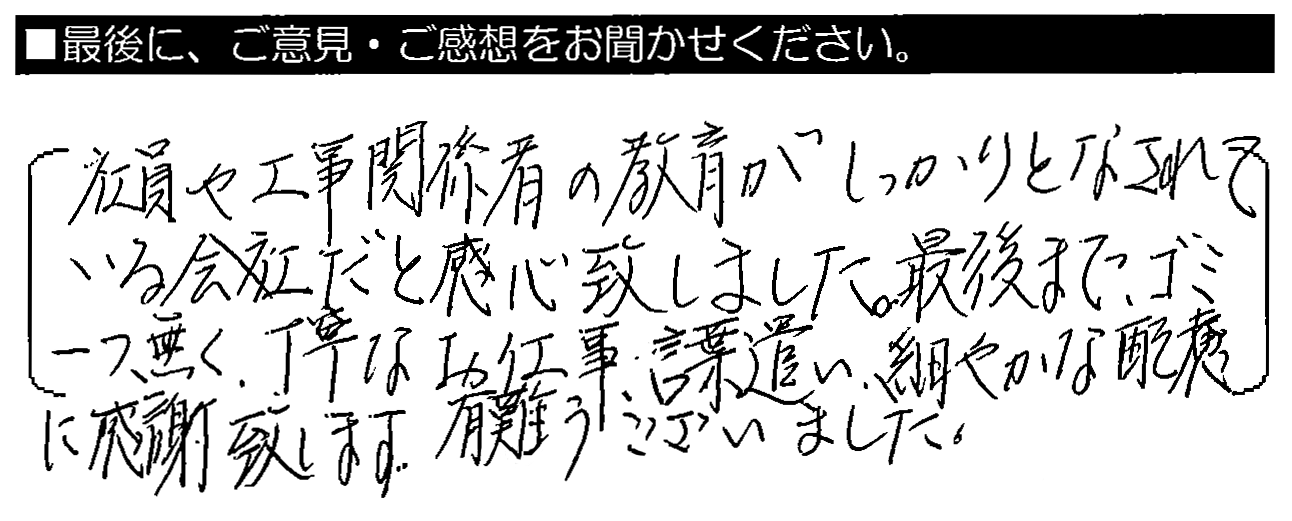 ■最後に、ご意見・ご感想をお聞かせください。
社員や工事関係者の教育がしっかりとなされて
いる会社だと感心致しました。最後まで、ゴミ
一つ無く、丁寧なお仕事、言葉遣い、細やかな配慮
に感謝致します。有難うございました。